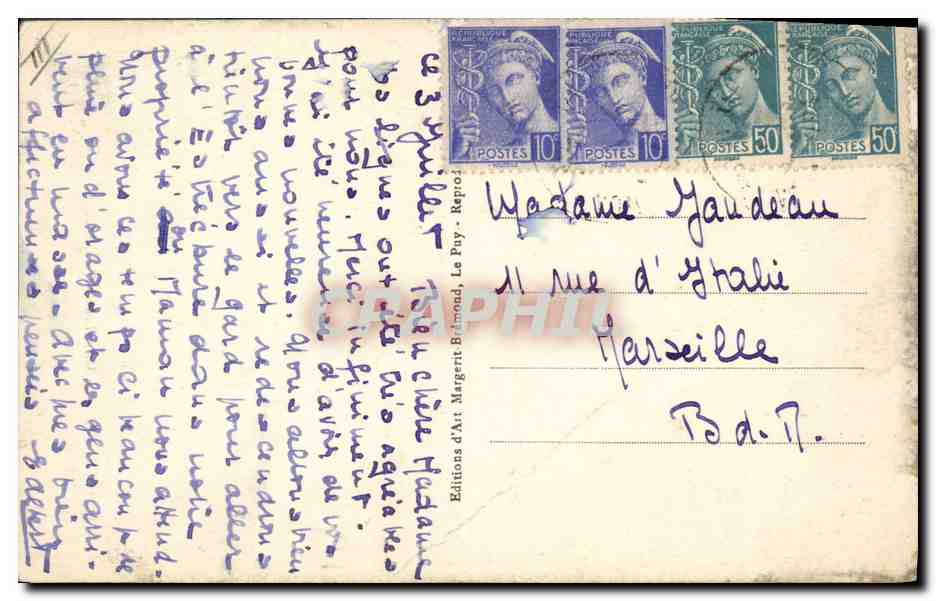 III
ce 3 Juillet Bien chère Madame
Vos lignes ont été très agréables
pour nous. Merci infiniment.
J'ai été heureuse d'avoir de vos
bonnes nouvelles. Nous allons bien
nous aussi et redescendrons
bientôt vers le gard pour aller
à l' dans notre
propriété où Maman nous attend.
Nous avons ces temps ci beaucoup de
pluie ou d'orages et les gens arri-
vent en masse. Avec mes très
affectueuses pensées
Editions d'Art Margerit-Brémond, Le Puy - Reprod
RÉPUBLIQUE FRANÇAISE POSTES 10c
RÉPUBLIQUE FRANÇAISE POSTES 10c
RÉPUBLIQUE FRANÇAISE POSTES 50c
RÉPUBLIQUE FRANÇAISE POSTES 50c
Madame Jaudeau
11 rue d'Italie
Marseille
B d. R.
CRAPHIL